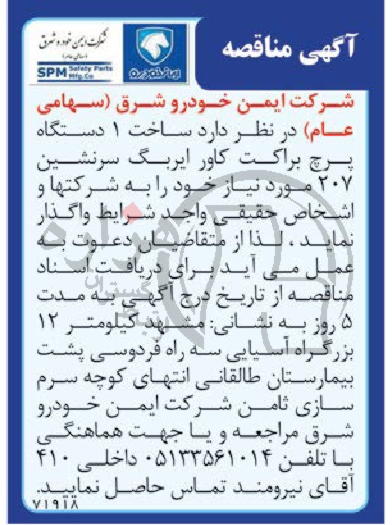 آگهی مناقصه
شرکت ایمن خودرو شرق
(سهامی عام)
SPM Safety Parts
Mfg.Co
ایران خودرو
شرکت ایمن خودرو شرق (سهامی
عام) در نظر دارد ساخت ۱ دستگاه
پرچ براکت کاور ایربگ سرنشین
۲۰۷ مورد نیاز خود را به شرکتها و
اشخاص حقیقی واجد شرایط واگذار
نماید ، لذا از متقاضیان دعوت به
عمل می آید برای دریافت اسناد
مناقصه از تاریخ درج آگهی به مدت
۵ روز به نشانی: مشهد کیلومتر ۱۲
بزرگراه آسیایی سه راه فردوسی پشت
بیمارستان طالقانی انتهای کوچه سرم
سازی ثامن شرکت ایمن خودرو
شرق مراجعه و یا جهت هماهنگی
با تلفن ۰۵۱۳۳۵۶۱۰۱۴ داخلی ۴۱۰
آقای نیرومند تماس حاصل نمایید.
۷۱۹۱۸
هزاره